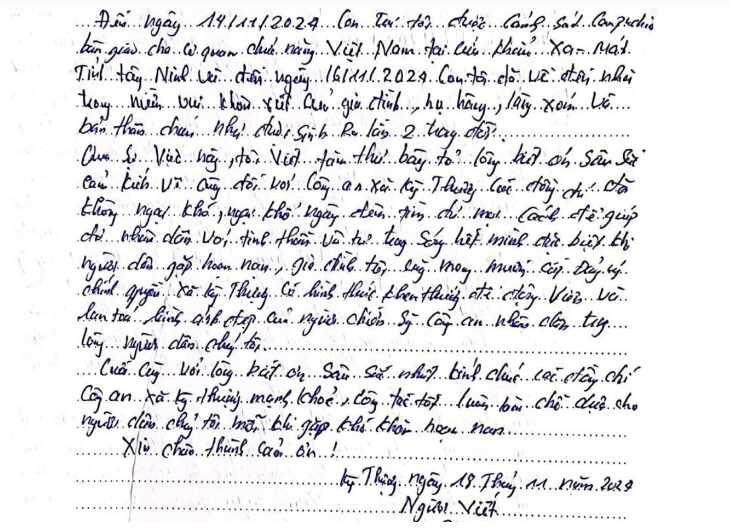 Đến ngày 14/11/2024 Con trai tôi được Cảnh sát Campuchia
bàn giao cho cơ quan chức năng Việt Nam tại cửa khẩu Xa-Mát
Tỉnh tây Ninh và đến ngày 16/11/2024 Con tôi đã về đến nhà
trong niềm vui khôn xiết của gia đình, họ hàng, làng xóm và
bản thân cháu như được sinh ra lần 2 trong đời.
Qua sự việc này, tôi viết tâm thư bày tỏ lòng biết ơn sâu sắc
cảm kích vô cùng đối với Công an xã Kỳ Thượng các đồng chí đã
không ngại khó, ngại khổ ngày đêm tìm đủ mọi cách để giúp
đỡ nhân dân với tinh thần và tư trong sáng hết mình đặc biệt khi
người dân gặp hoạn nạn, gia đình tôi cũng mong muốn cấp Đảng uỷ
chính quyền xã Kỳ Thượng có hình thức khen thưởng để động viên và
lan toả hình ảnh đẹp của người chiến sỹ công an nhân dân trong
lòng người dân chúng tôi.
Cuối cùng với lòng biết ơn sâu sắc nhất kính chúc các đồng chí
Công an xã Kỳ thượng mạnh khoẻ, công tác tốt luôn là chỗ dựa cho
người dân chúng tôi mỗi khi gặp khó khăn hoạn nạn.
Xin chân thành cảm ơn!
Kỳ Thượng ngày 18 Tháng 11 năm 2024
Người Viết